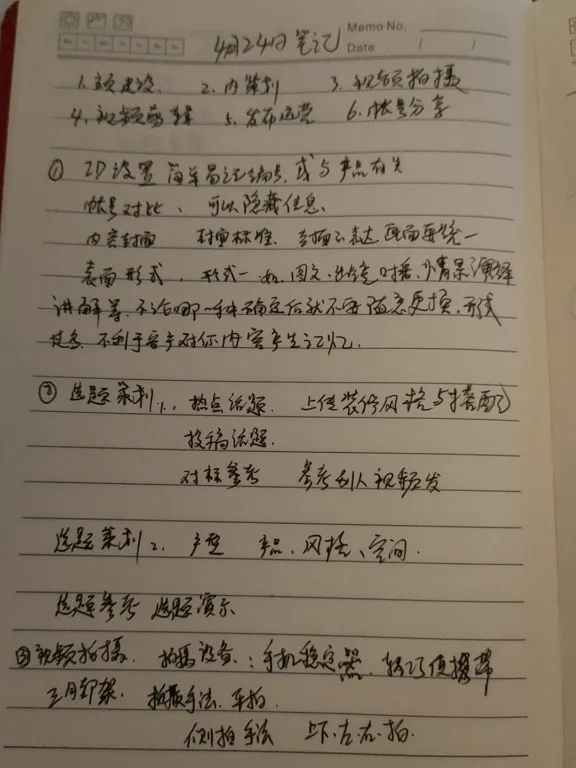 Memo No.
4月24日笔记
Date / /
1. 建设. 2. 内策划 3. 视频拍摄
4. 视频剪辑 5. 发布运营 6. 帐号分享
① ID设置 简单易记编号, 或与产品有关
帐号对比、可以隐藏信息、
内容封面 封面标准、封面表达 画面要统一
表面形式, 形式一 如, 图文, 对播, 情景演绎
讲解等, 不论哪一种确定后就不要随意更换, 形式
过多, 不利于客户对你内容产生记忆.
② 选题策划1, 热点话题. 上传装修风格与搭配
投稿话题.
对标参考 参考别人视频发
选题策划2, 户型 产品, 风格、空间.
选题参考 选题演示
视频拍摄, 拍摄设备: 手机稳定器, 轻巧便携带
三月却架, 拍摄手法, 平拍.
侧拍手法 上.下.左.右.拍.